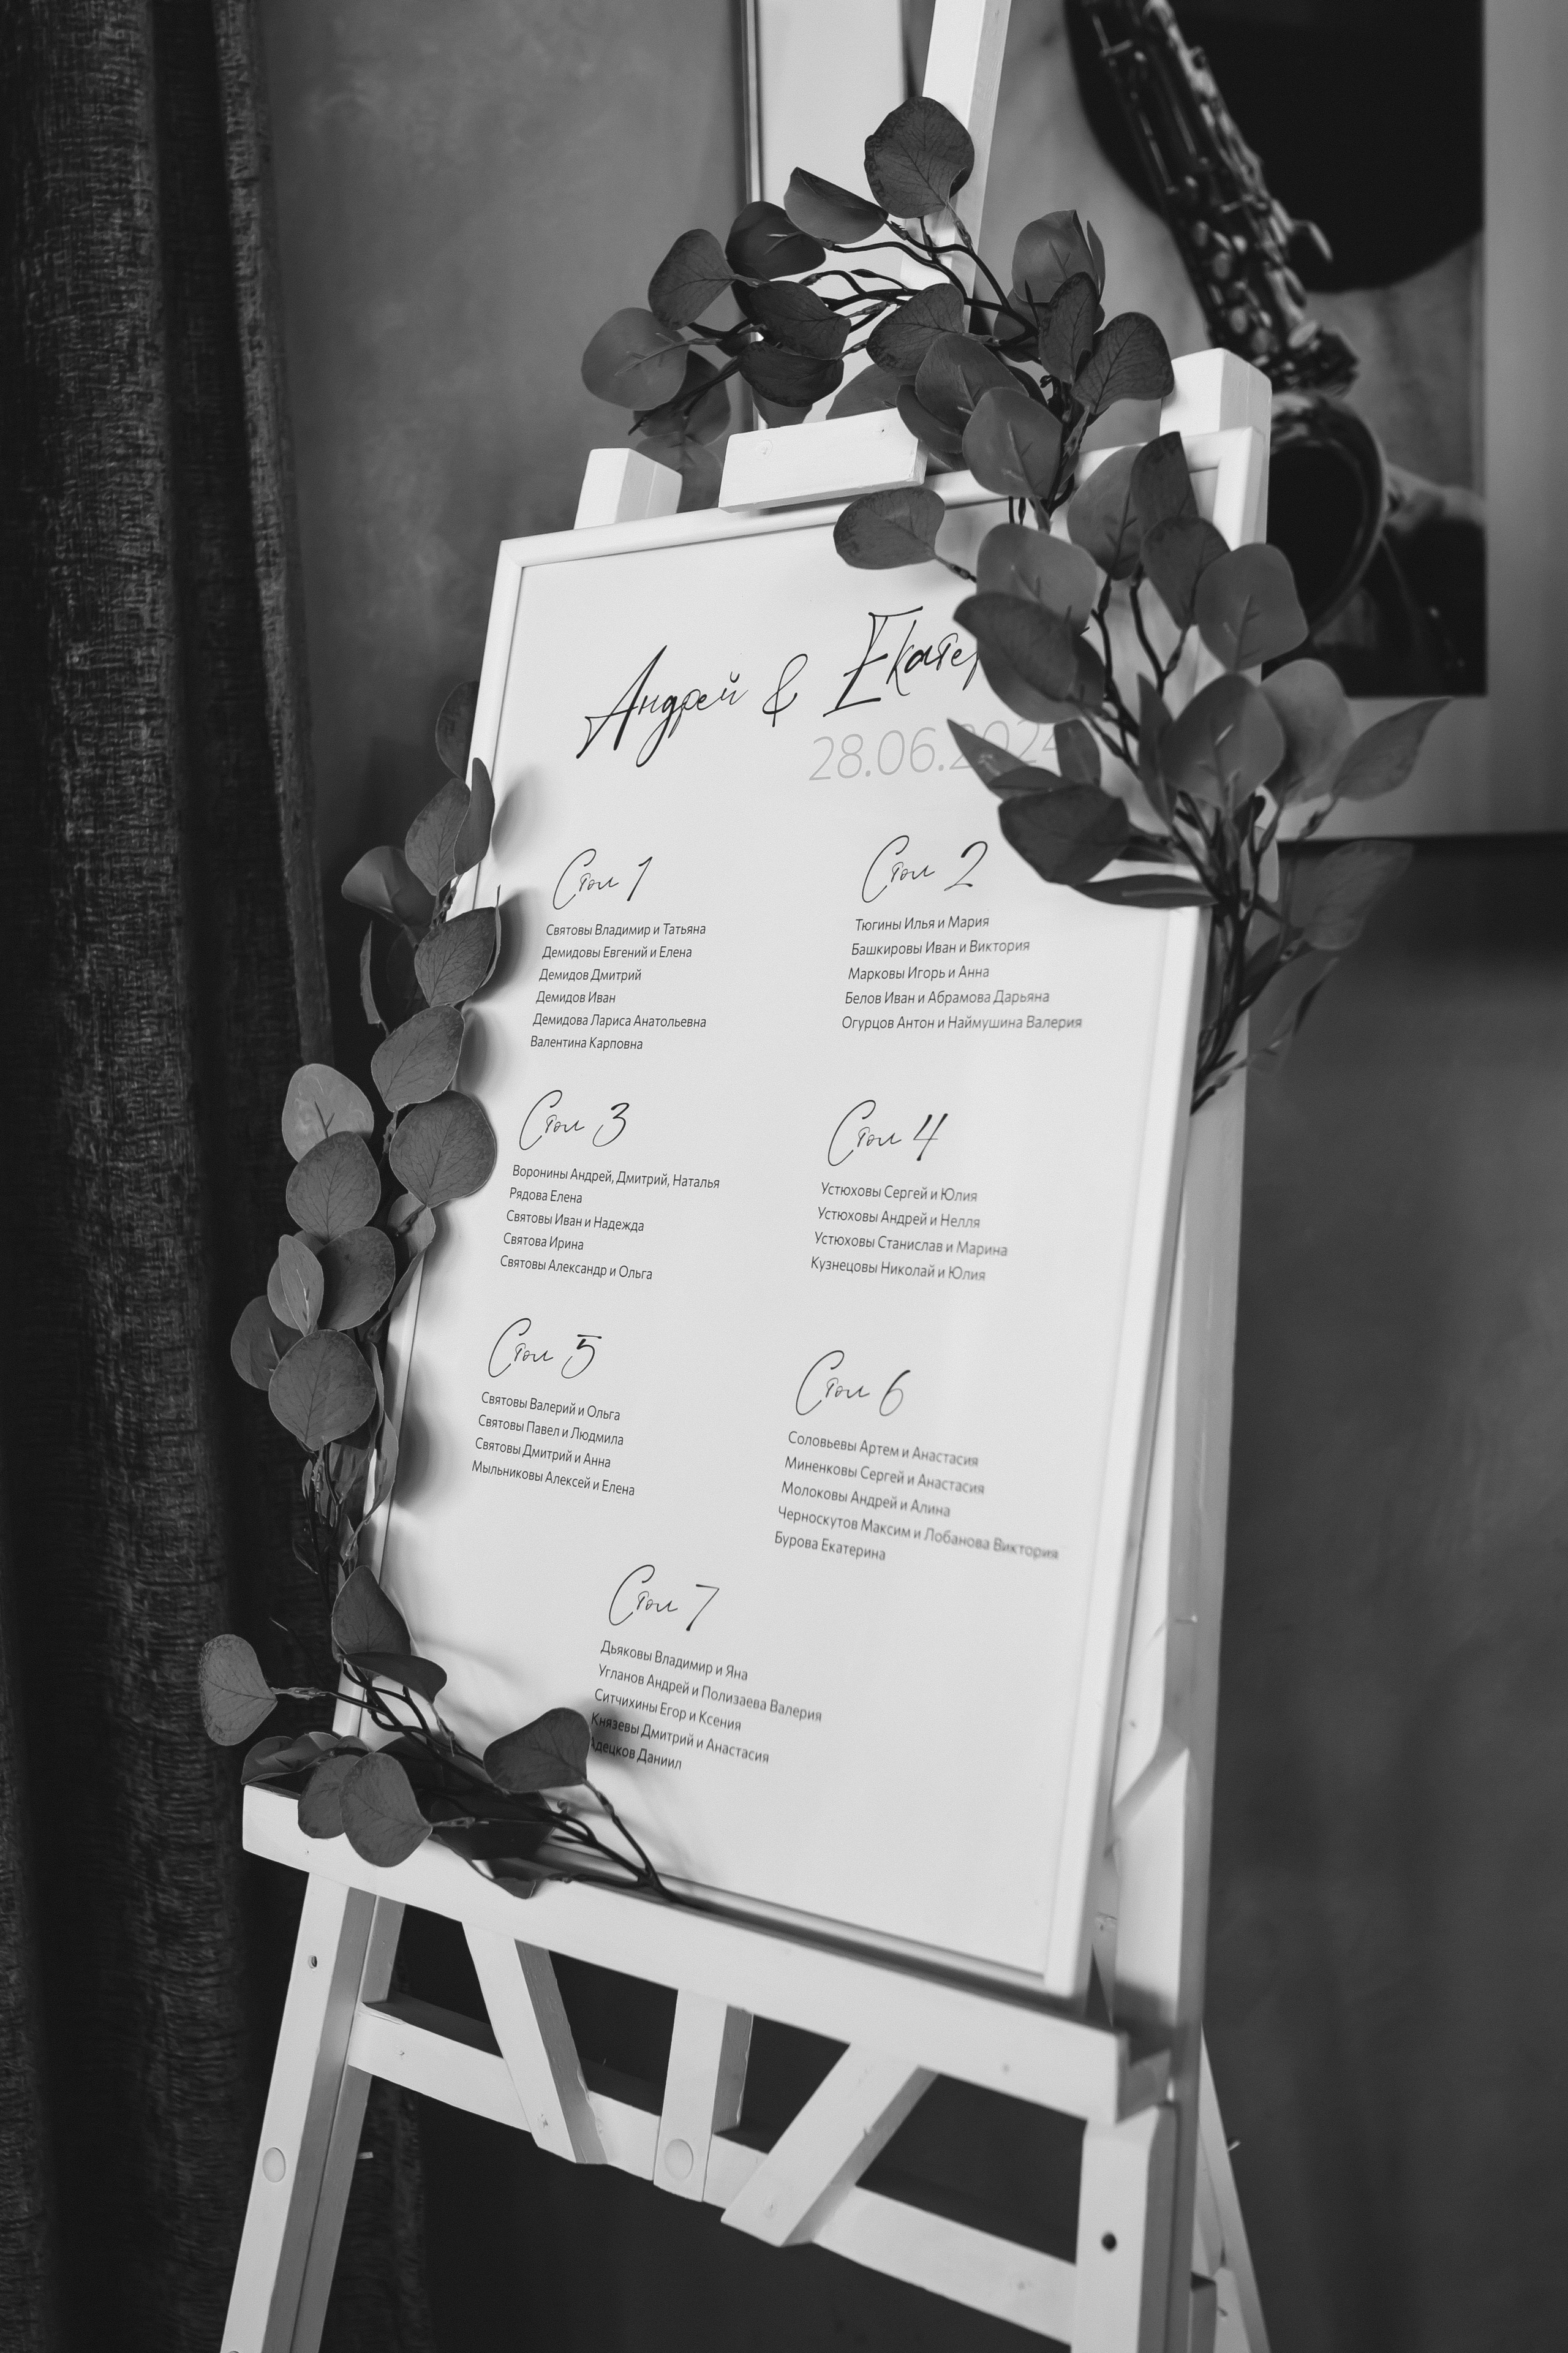 Андрей & Екатер
28.06.2024
Стол 1
Святовы Владимир и Татьяна
Демидовы Евгений и Елена
Демидов Дмитрий
Демидов Иван
Демидова Лариса Анатольевна
Валентина Карповна
Стол 2
Тюгины Илья и Мария
Башкировы Иван и Виктория
Марковы Игорь и Анна
Белов Иван и Абрамова Дарьяна
Огурцов Антон и Наймушина Валерия
Стол 3
Воронины Андрей, Дмитрий, Наталья
Рядова Елена
Святовы Иван и Надежда
Святова Ирина
Святовы Александр и Ольга
Стол 4
Устюховы Сергей и Юлия
Устюховы Андрей и Нелля
Устюховы Станислав и Марина
Кузнецовы Николай и Юлия
Стол 5
Святовы Валерий и Ольга
Святовы Павел и Людмила
Святовы Дмитрий и Анна
Мыльниковы Алексей и Елена
Стол 6
Соловьевы Артем и Анастасия
Миненковы Сергей и Анастасия
Молоковы Андрей и Алина
Черноскутов Максим и Лобанова Виктория
Бурова Екатерина
Стол 7
Дьяковы Владимир и Яна
Угланов Андрей и Полизаева Валерия
Ситчихины Егор и Ксения
Князевы Дмитрий и Анастасия
Даниил